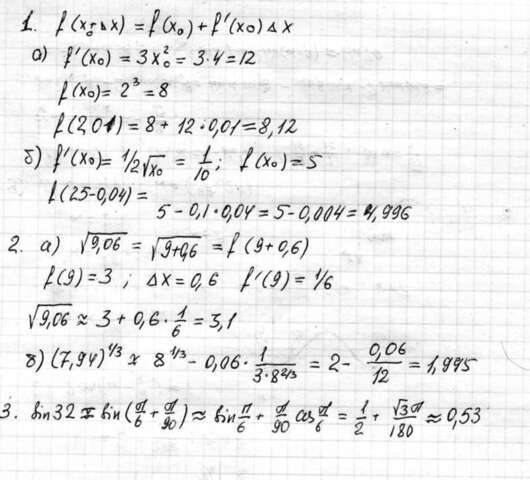 1. f(x₀+Δx) = f(x₀) + f'(x₀)Δx
а) f'(x₀) = 3x₀² = 3·4 = 12
f(x₀) = 2³ = 8
f(2,01) = 8 + 12·0,01 = 8,12
б) f'(x₀) = 1/2√x₀ = 1/10; f(x₀) = 5
f(25-0,04) =
5 - 0,1·0,04 = 5 - 0,004 = 4,996
2. а) √9,06 = √9+0,6 = f(9+0,6)
f(9) = 3; Δx = 0,6 f'(9) = 1/6
√9,06 ≈ 3 + 0,6·1/6 = 3,1
б) (7,94)^1/3 ≈ 8^1/3 - 0,06·1/3·8^2/3 = 2 - 0,06/12 = 1,995
3. sin32 = sin(π/6 + π/90) ≈ sin π/6 + π/90 cos π/6 = 1/2 + √3π/180 ≈ 0,53